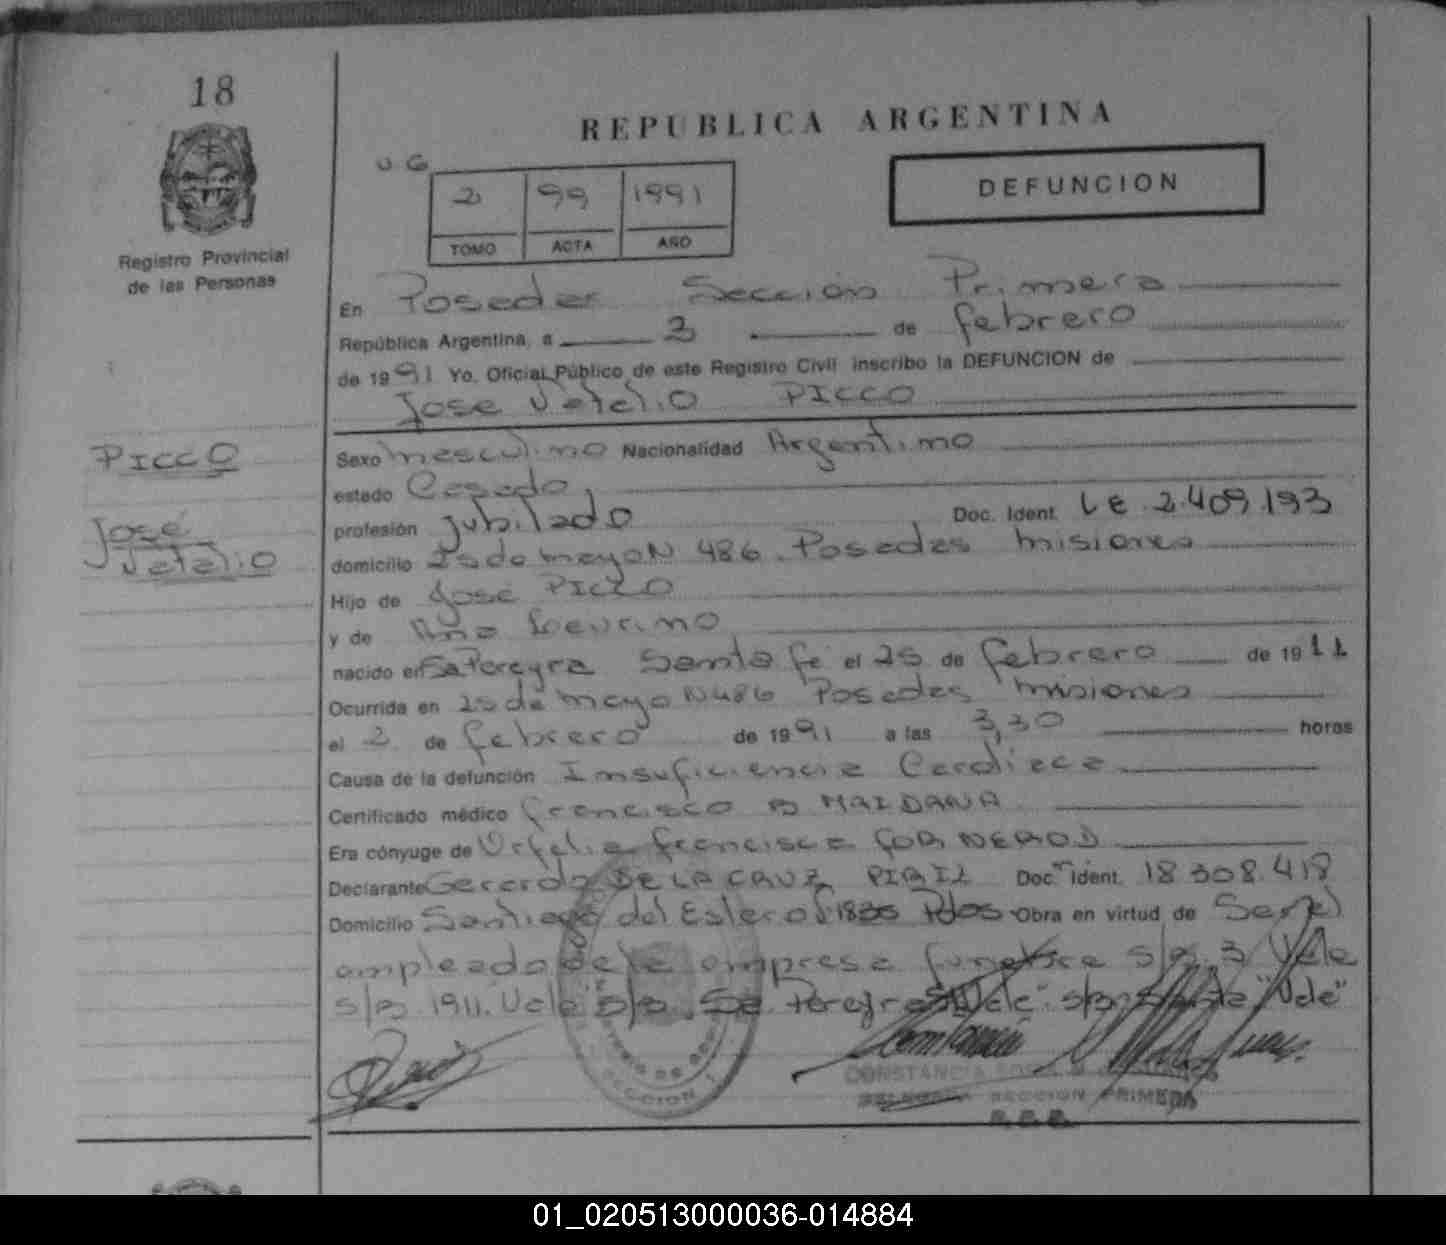 18
REPUBLICA ARGENTINA
U G
2 99 1991
TOMO ACTA AÑO
DEFUNCION
Registro Provincial
de las Personas
En Posadas Sección Primera
República Argentina, a 3 de febrero
de 1991 Yo, Oficial Público de este Registro Civil inscribo la DEFUNCION de
Jose Vetelio PICCO
PICCO
José
Vetelio
Sexo masculino Nacionalidad Argentino
estado Casado
profesión jubilado Doc. Ident. LE 2.409.193
domicilio 25 de mayo N 486. Posadas misiones
Hijo de José PICCO
y de Ana
nacido en Sa Pereyra Santa fe el 25 de febrero de 1911
Ocurrida en 25 de mayo N 486 Posadas misiones
el 2 de febrero de 1991 a las 3,30 horas
Causa de la defunción Insuficiencia Cardiaca
Certificado médico francisco B MAIDANA
Era cónyuge de Orfelia francisca FORNEROD
Declarante Gerardo DE LA CRUZ Doc. Ident. 18 308.418
Domicilio Santiago del Estero 1836 Pdos Obra en virtud de Ser el
empleado de la empresa funebre s/b. 3 Vale
s/b. 1911. Vale s/b. Sa Pereyra "Vale". s/b "Vale"
SECCION 1
CONSTANCIA
SECCION PRIMERA
01_020513000036-014884